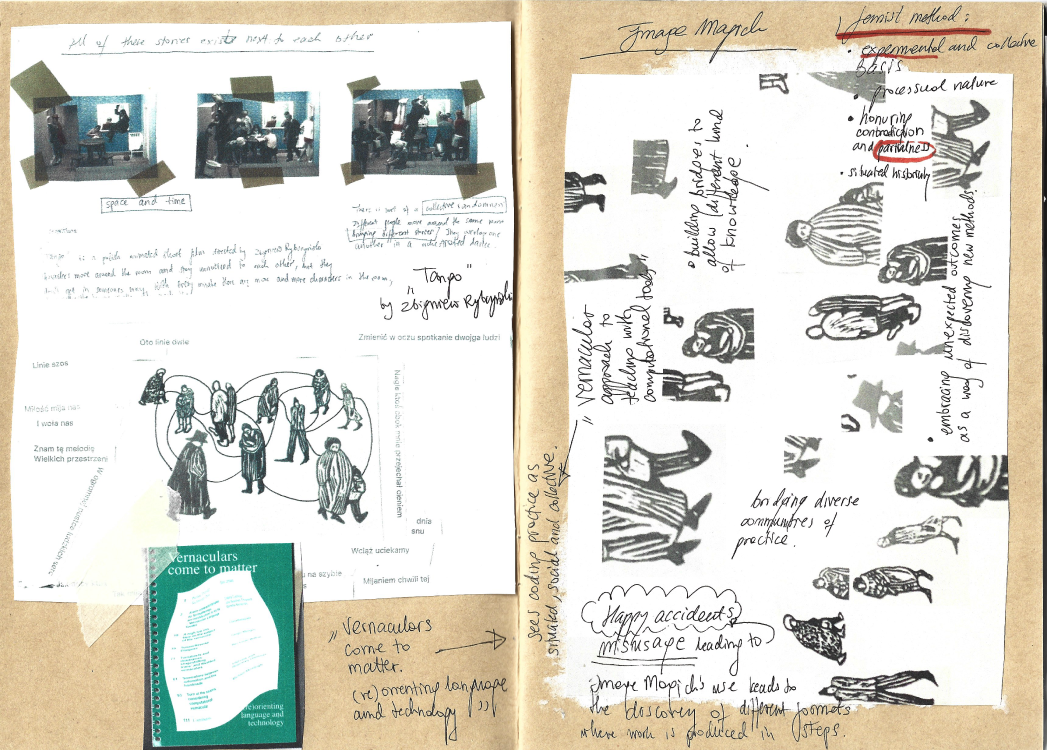 All of these stories exist next to each other
space and time
There is sort of a collective randomness
Different people move around the same room
bringing different stories. They overlap one
another in a
Tango is a polish animated short film
more around the room and very to each other, but they
more and more characters in the room,
"Tango"
by Zbigniew Rybczyński
Oto linie owie
Zmienić w oczu spotkanie dwojga ludzi
Linie szos
Miłość mija nas
I woła nas
Znam tę melodię
Wielkich przestrzeni
Nagle ktoś obok mnie przejechał cieniem
W ogromniej pustce ludzkich serc
dnia
snu
Wciąż uciekamy
u na szybie
Mijaniem chwili tej
Vernaculars
come to matter
(re)orienting
language and
technology
"Vernaculars
come to
matter.
(re)orienting language
and technology"
Image Magick
femist method:
• experimental and collective
basis
• processual nature
• honuring
contradiction
and partialness
• situated historicity
• building bridges to
allow different kind
of knowledge.
"Vernacular
approach to
teaching with
computational tools"
sees coding practice as
situated, social and collective.
• embracing unexpected outcomes
as a way of discovering new methods.
bridging diverse
communities of
practice.
Happy accidents,
misusage leading to
Image Magick's use leads to
the discovery of different formats
where work is produced in steps.